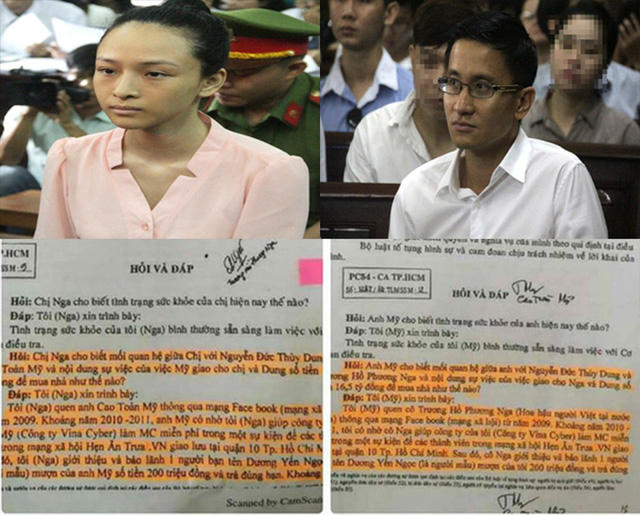 P.HCM
SSM-5
HỎI VÀ ĐÁP
Hỏi: Chị Nga cho biết tình trạng sức khỏe của chị hiện nay thế nào?
Đáp: Tôi (Nga) xin trình bày:
Tình trạng sức khỏe của tôi (Nga) bình thường sẵn sàng làm việc với
điều tra.
Hỏi: Chị Nga cho biết mối quan hệ giữa Chị với Nguyễn Đức Thùy Dung
Toàn Mỹ và nội dung sự việc của việc Mỹ giao cho chị và Dung số tiền
ng để mua nhà như thế nào?
Đáp: Tôi (Nga) xin trình bày:
Tôi (Nga) quen anh Cao Toàn Mỹ thông qua mạng Face book (mạng xã
m 2009. Khoảng năm 2010 -2011, anh Mỹ có nhờ tôi (Nga) giúp công ty
Mỹ (Công ty Vina Cyber) làm MC miễn phí trong một sự kiện để các t
trong mạng xã hội Hẹn Ăn Trưa.VN giao lưu tại quận 10 Tp. Hồ Chí M
đó, tôi (Nga) giới thiệu và bảo lãnh 1 người bạn tên Dương Yến Ngọc
là) mượn của anh Mỹ số tiền 200 triệu đồng và trả đúng hạn. Khoảng
Scanned by CamScan
quyền và nghĩa vụ của mình theo qui định tại điều
Bộ luật tố tụng hình sự và cam đoan chịu trách nhiệm về lời khai của
ình.
PC84 - CA TP.HCM
HỎI VÀ ĐÁP
Cao Toàn Mỹ
Hỏi: Anh Mỹ cho biết tình trạng sức khỏe của anh hiện nay thế nào?
Đáp: Tôi (Mỹ) xin trình bày:
Tình trạng sức khỏe của tôi (Mỹ) bình thường sẵn sàng làm việc với Cơ
an điều tra.
Hỏi: Anh Mỹ cho biết mối quan hệ giữa anh với Nguyễn Đức Thùy Dung và
rương Hồ Phương Nga và nội dung sự việc của việc giao cho Nga và Dung số
n 16,5 tỷ đồng để mua nhà như thế nào?
Đáp: Tôi (Mỹ) xin trình bày:
Tôi (Mỹ) quen cô Trương Hồ Phương Nga (Hoa hậu người Việt tại nước
thông qua mạng Face book (mạng xã hội) từ năm 2009. Khoảng năm 2010 -
, tôi có nhờ cô Nga giúp công ty của tôi (Công ty Vina Cyber) làm MC miễn
trong một sự kiện để các thành viên trong mạng xã hội Hẹn Ăn Trưa.VN
tại quận 10 Tp. Hồ Chí Minh. Sau đó, cô Nga giới thiệu và bảo lãnh 1 người
ên Dương Yến Ngọc (là người mẫu) mượn của tôi 200 triệu đồng và trả đúng